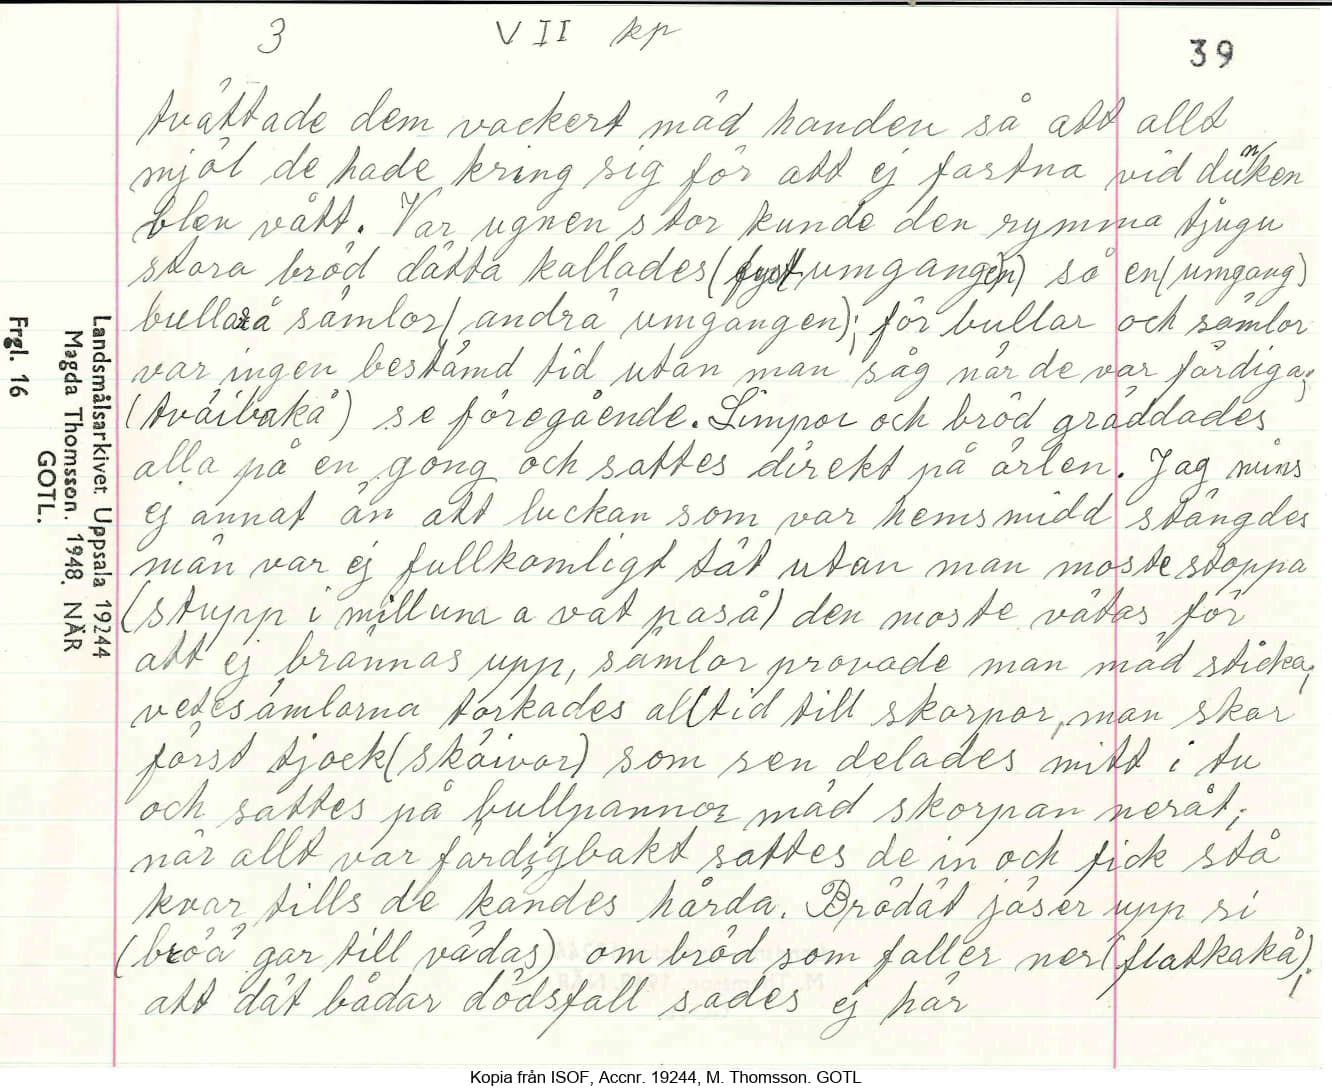 3 VII kp
39
tvättade dem vackert mäd handen så att allt
mjöl de hade kring sig för att ej fastna vid duken
blev vått. Var ugnen stor kunde den rymma tjugu
stora bröd dätta kallades ( umgangen) så en (umgang)
bulla å sämlor (andrä umgangen); för bullar och sämlor
var ingen bestämd tid utan man såg när de var färdiga;
(tväibakå) se föregående. Limpor och bröd gräddades
alla på en gong och sattes direkt på ärlen. Jag mins
ej annat än att luckan som var hemsmidd stängdes
män var ej fullkomligt tät utan man moste stoppa
(stupp i millum a vat paså) den moste vätas för
att ej brännas upp, sämlor provade man mäd sticka;
vetesämlorna torkades alltid till skorpor, man skar
först tjock (skäivor) som sen delades mitt i tu
och sattes på bullpannor mäd skorpan neråt;
när allt var färdigbakt sattes de in och fick stå
kvar tills de kändes hårda. Brödät jäser upp si
(bröä gar till vädas) om bröd som faller ner (flatkakå);
att dät bådar dödsfall sades ej här
Landsmålsarkivet, Uppsala 19244
Magda Thomsson. 1948. NÄR
GOTL.
Frgl. 16
Kopia från ISOF, Accnr. 19244, M. Thomsson. GOTL